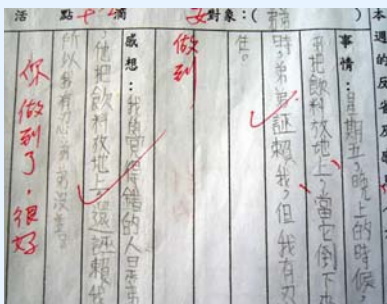 活 點 滴 對象：(
本週的反省
事情：星期五晚上的時候，
我把飲料放地上，當它倒下來
時，弟弟誣賴我，但我有忍
住。
做到
感想：我的覺得錯的人是弟弟
，他把飲料放地上，還誣賴我
所以我有忍，弟弟沒
你做到了，很好